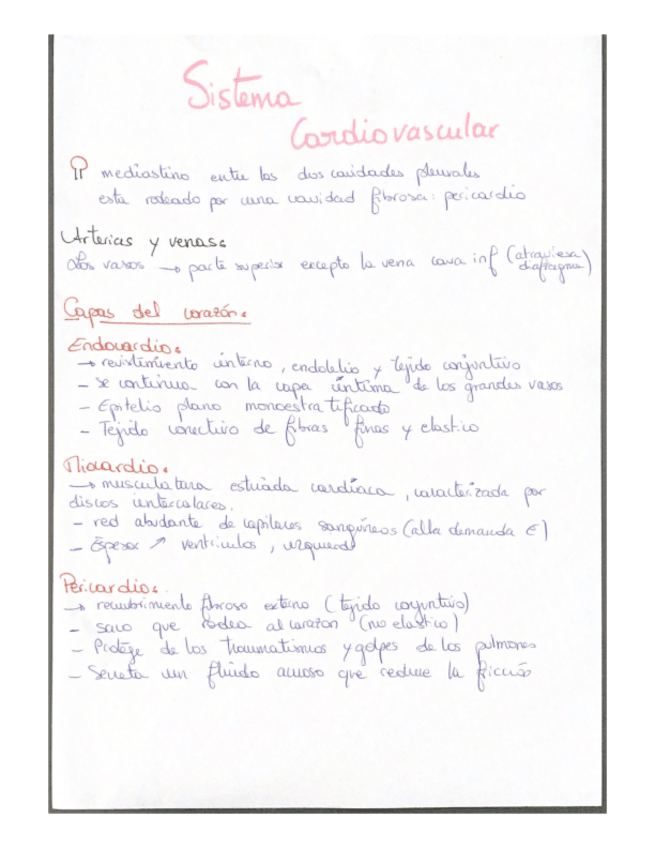 Sistema
Cardiovascular
mediastino entre las dos cavidades pleurales
esta rodeado por una cavidad fibrosa: pericardio
Arterias y venas:
Los vasos → parte superior excepto la vena cava inf (atraviesa
diafragma)
Capas del corazón:
Endocardio:
→ revistimiento interno, endotelio y tejido conjuntivo
- se continua con la capa íntima de los grandes vasos
- Epitelio plano monoestratificado
- Tejido conectivo de fibras finas y elastico
Miocardio:
→ musculatura estriada cardíaca, caracterizada por
discos intercalares.
- red abudante de capilares sanguíneos (alta demanda E)
- Espesor ↗ ventriculos, izquierdo
Pericardio:
→ recubrimiento fibroso externo (tejido conjuntivo)
- saco que rodea al corazon (no elastico)
- Protege de los traumatismos y golpes de los pulmones
- Secreta un fluido acuoso que reduce la fricción